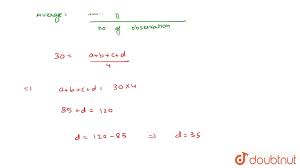 Average =
no of observation
30 = a+b+c+d
4
=) a+b+c+d = 30×4
85 +d = 120
d = 120 - 85 => d = 35
doubtnut